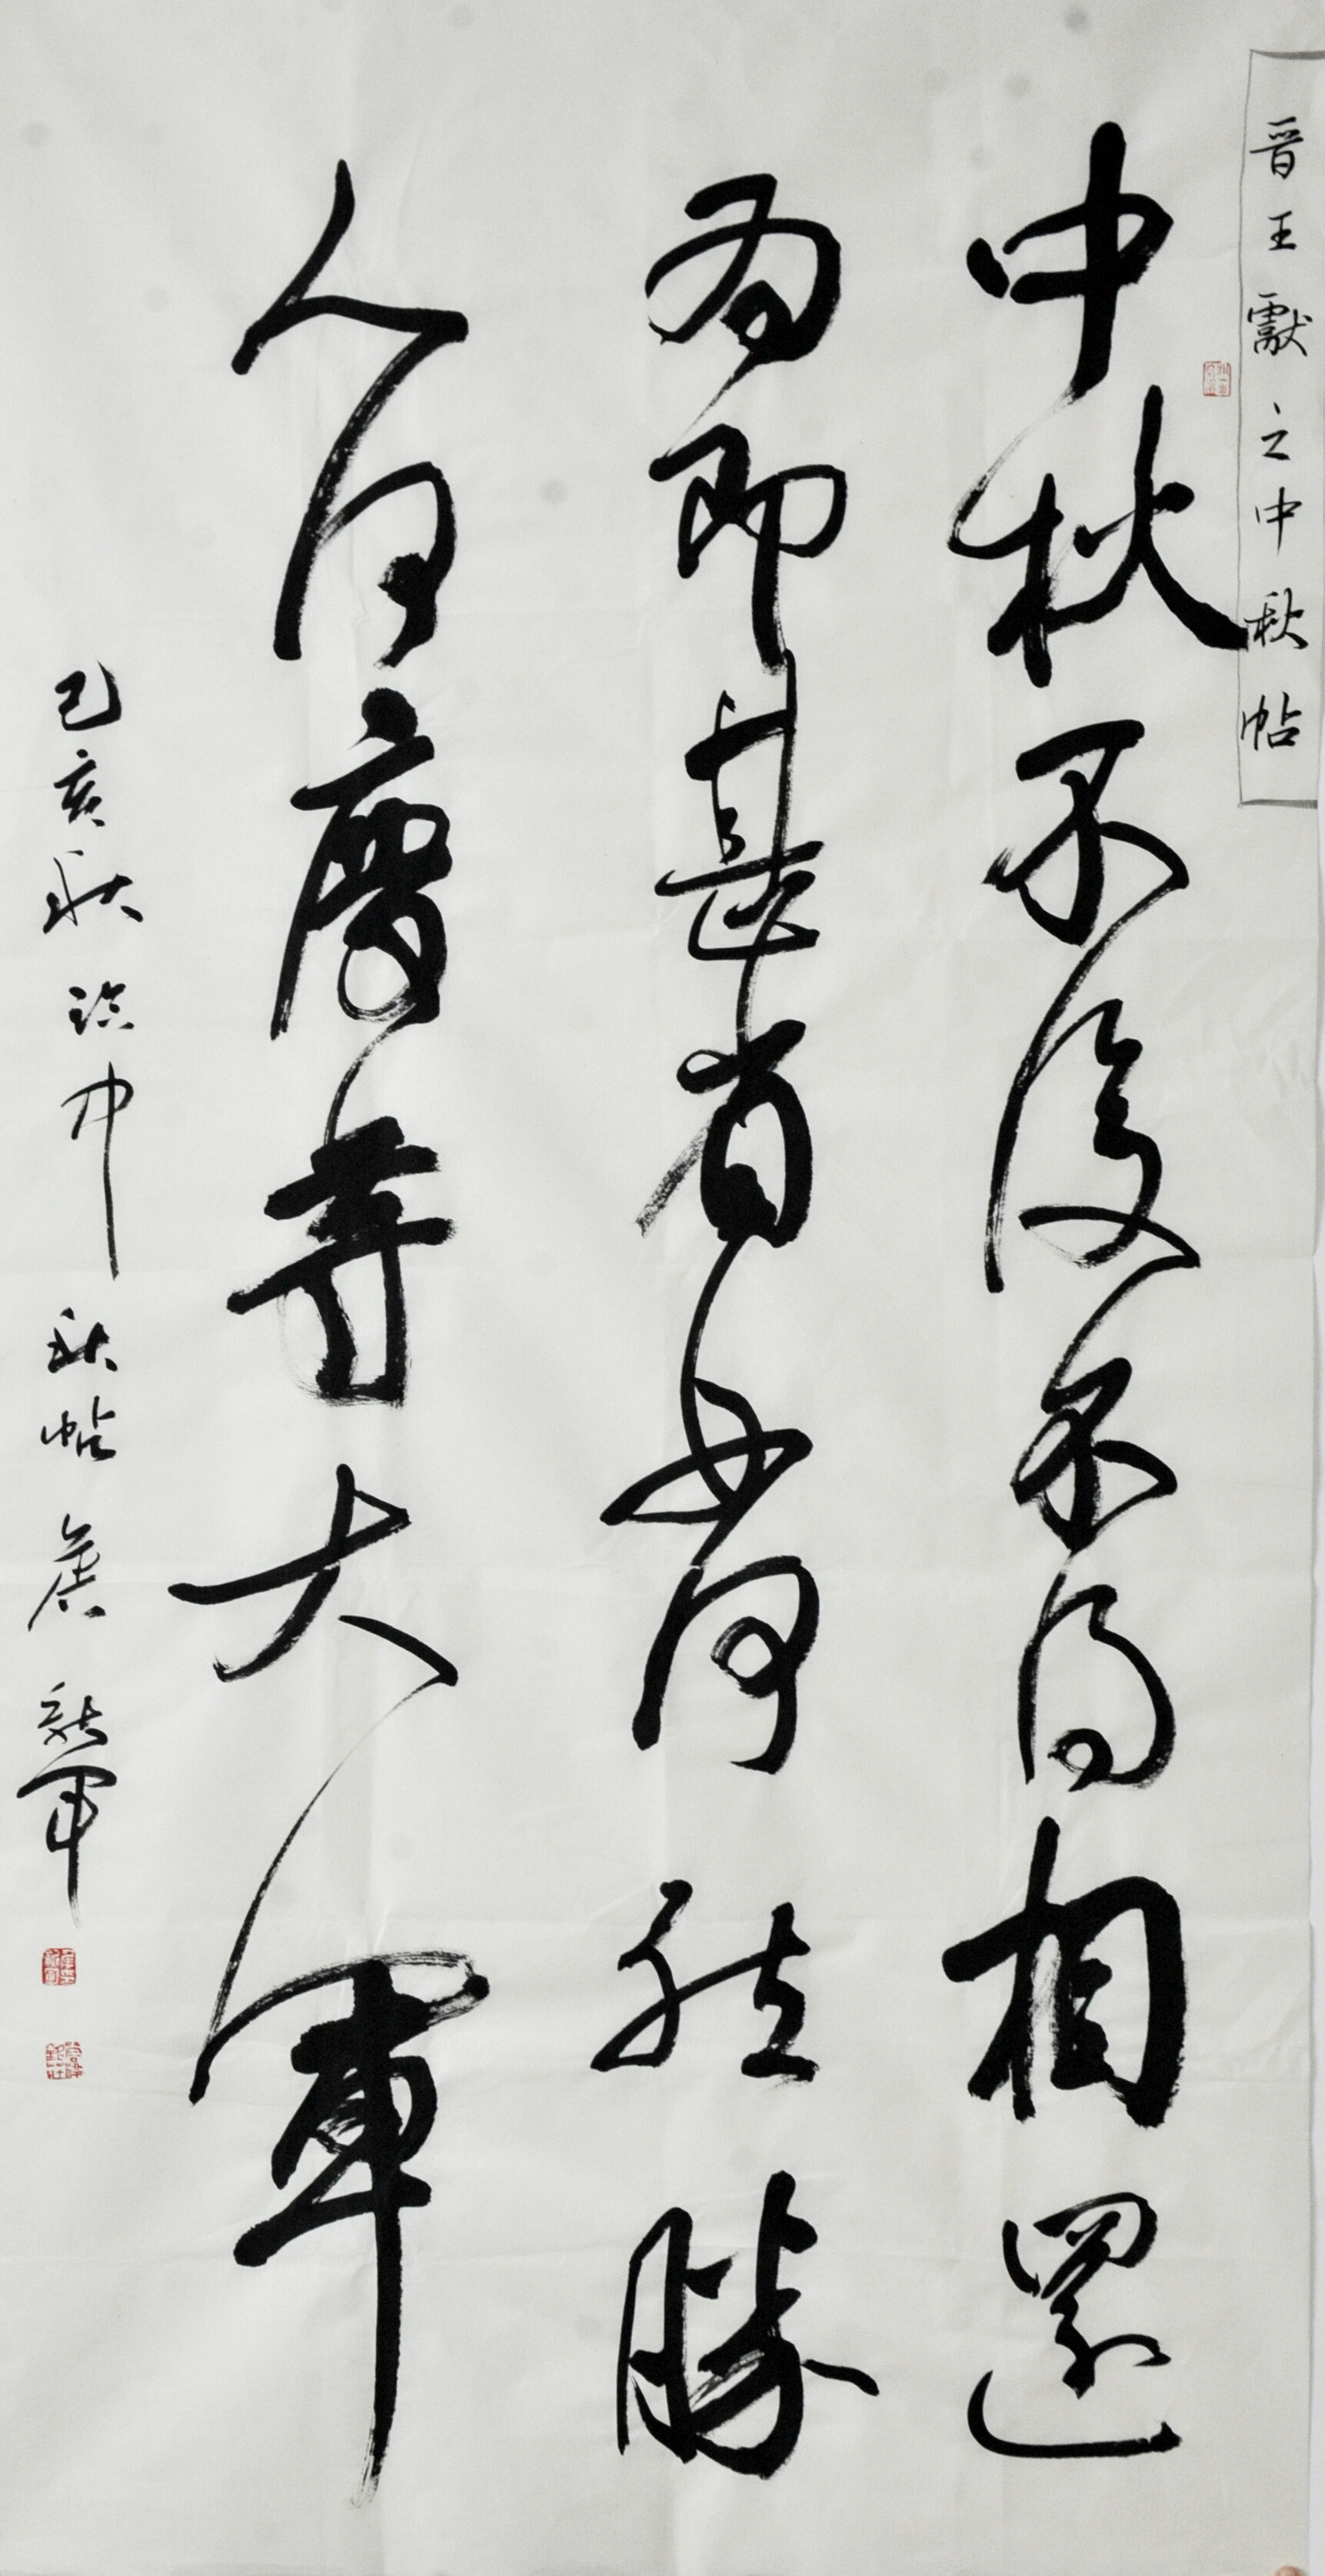 晋王獻之中秋帖
中秋不復不得相還
為即甚省如何然勝
人何慶等大軍
己亥秋臨中秋帖 軍